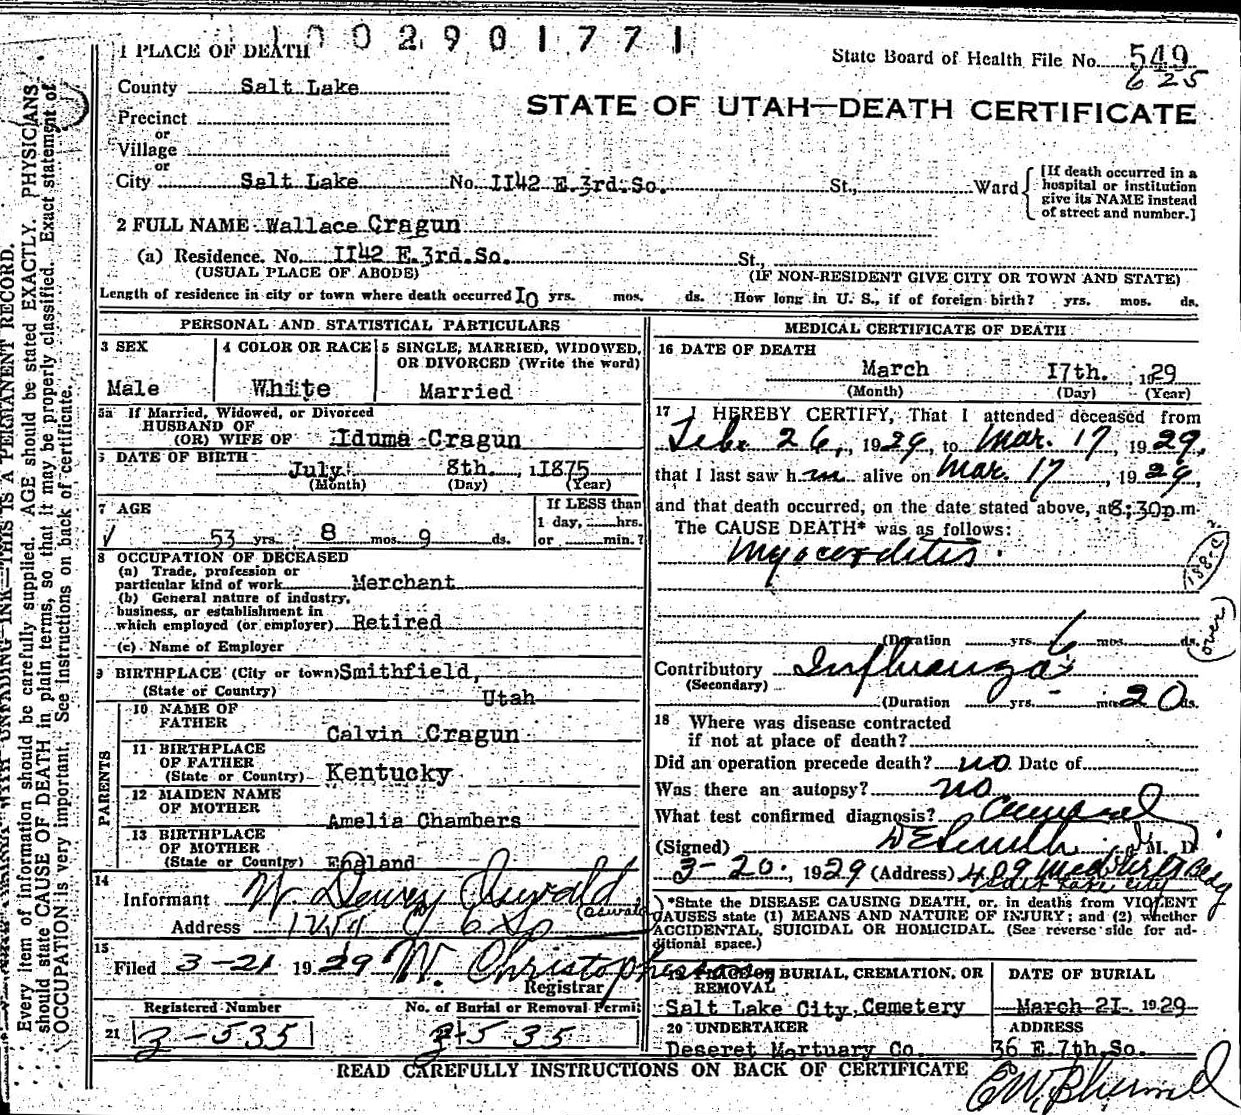 1002901771
1 PLACE OF DEATH
State Board of Health File No. 549
625
County Salt Lake
STATE OF UTAH—DEATH CERTIFICATE
Precinct
or
Village
or
City Salt Lake No. 1142 E.3rd.So. St., Ward
[If death occurred in a
hospital or institution
give its NAME instead
of street and number.]
2 FULL NAME Wallace Cragun
(a) Residence. No. 1142 E.3rd.So. St.,
(USUAL PLACE OF ABODE) (IF NON-RESIDENT GIVE CITY OR TOWN AND STATE)
Length of residence in city or town where death occurred 10 yrs. mos. ds. How long in U. S., if of foreign birth? yrs. mos. ds.
PERSONAL AND STATISTICAL PARTICULARS
3 SEX
Male
4 COLOR OR RACE
White
5 SINGLE, MARRIED, WIDOWED,
OR DIVORCED (Write the word)
Married
5a If Married, Widowed, or Divorced
HUSBAND OF
(OR) WIFE OF Iduma Cragun
6 DATE OF BIRTH
July 8th. 1 1875
(Month) (Day) (Year)
7 AGE
53 yrs. 8 mos. 9 ds.
If LESS than
1 day, hrs.
or min.?
8 OCCUPATION OF DECEASED
(a) Trade, profession or
particular kind of work Merchant
(b) General nature of industry,
business, or establishment in
which employed (or employer) Retired
(c) Name of Employer
9 BIRTHPLACE (City or town) Smithfield,
(State or Country) Utah
PARENTS
10 NAME OF
FATHER Calvin Cragun
11 BIRTHPLACE
OF FATHER
(State or Country) Kentucky
12 MAIDEN NAME
OF MOTHER Amelia Chambers
13 BIRTHPLACE
OF MOTHER
(State or Country) England
14
Informant W Dewey Oswald
(Oswald)
Address
15
Filed 3-21 1929 W. Christopherson
Registrar
Registered Number No. of Burial or Removal Permit
21 3-535 3-535
MEDICAL CERTIFICATE OF DEATH
16 DATE OF DEATH
March 17th. 1929
(Month) (Day) (Year)
17 I HEREBY CERTIFY, That I attended deceased from
Feb. 26, 1929, to Mar. 17, 1929,
that I last saw h im alive on Mar. 17, 1929,
and that death occurred, on the date stated above, at 8:30p.m
The CAUSE DEATH* was as follows:
Myocarditis.
(Duration yrs. 6 mos. ds.
(over)
Contributory Influenza
(Secondary)
(Duration yrs. mos. 20 ds.
18 Where was disease contracted
if not at place of death?
Did an operation precede death? no Date of
Was there an autopsy? no
What test confirmed diagnosis?
(Signed) D E Smith M. D.
3-20, 1929 (Address) 409 Med Arts Bldg
Salt Lake City
*State the DISEASE CAUSING DEATH, or, in deaths from VIOLENT
CAUSES state (1) MEANS AND NATURE OF INJURY; and (2) whether
ACCIDENTAL, SUICIDAL OR HOMICIDAL. (See reverse side for ad-
ditional space.)
19 PLACE OF BURIAL, CREMATION, OR
REMOVAL
Salt Lake City, Cemetery
DATE OF BURIAL
March 21 1929
20 UNDERTAKER
Deseret Mortuary Co.
ADDRESS
36 E.7th.So.
READ CAREFULLY INSTRUCTIONS ON BACK OF CERTIFICATE
Every item of information should be carefully supplied. AGE should be stated EXACTLY. PHYSICIANS
should state CAUSE OF DEATH in plain terms, so that it may be properly classified. Exact statement of
OCCUPATION is very important. See instructions on back of certificate.
UNFADING INK—THIS IS A PERMANENT RECORD.